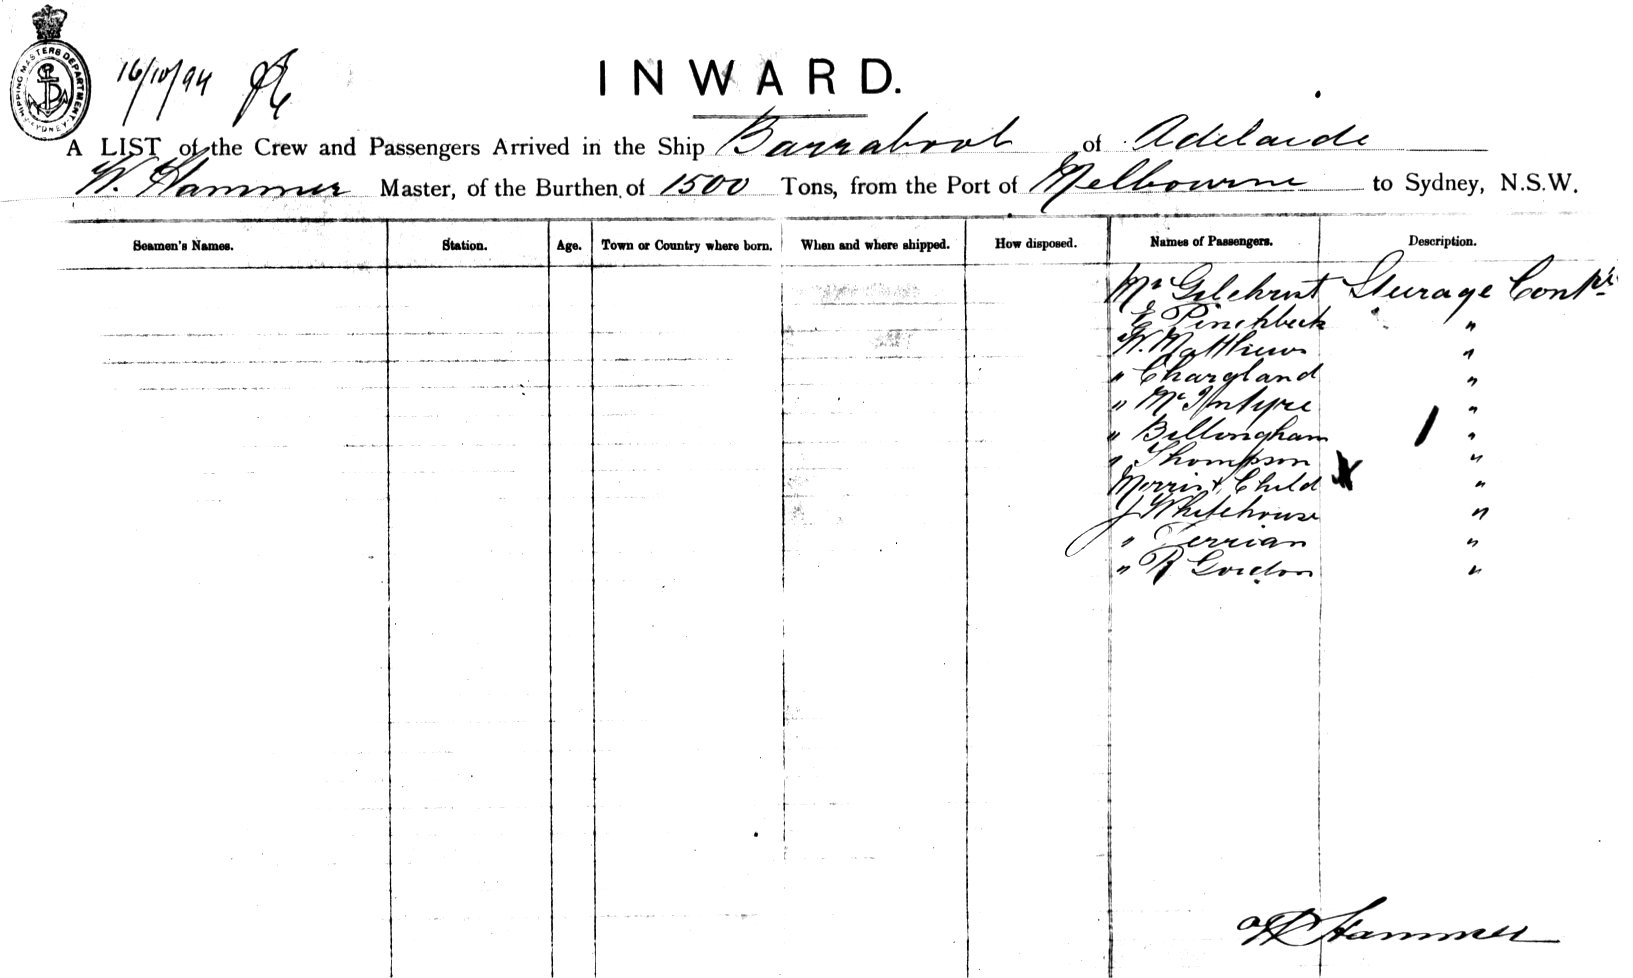 SHIPPING MASTERS DEPARTMENT SYDNEY
16/10/94
INWARD.
A LIST of the Crew and Passengers Arrived in the Ship Barrabool of Adelaide
W. Hammer Master, of the Burthen of 1500 Tons, from the Port of Melbourne to Sydney, N.S.W.
Seamen's Names. Station. Age. Town or Country where born. When and where shipped. How disposed. Names of Passengers. Description.
Mr Gilchrist Sturage Contr
Pinchbeck "
W. Matthews "
" Chargland "
" McIntyre "
" Billingham "
" Thompson "
Morris & Child "
J Whitehouse "
" Terrian "
" R Gordon "
W Hammer